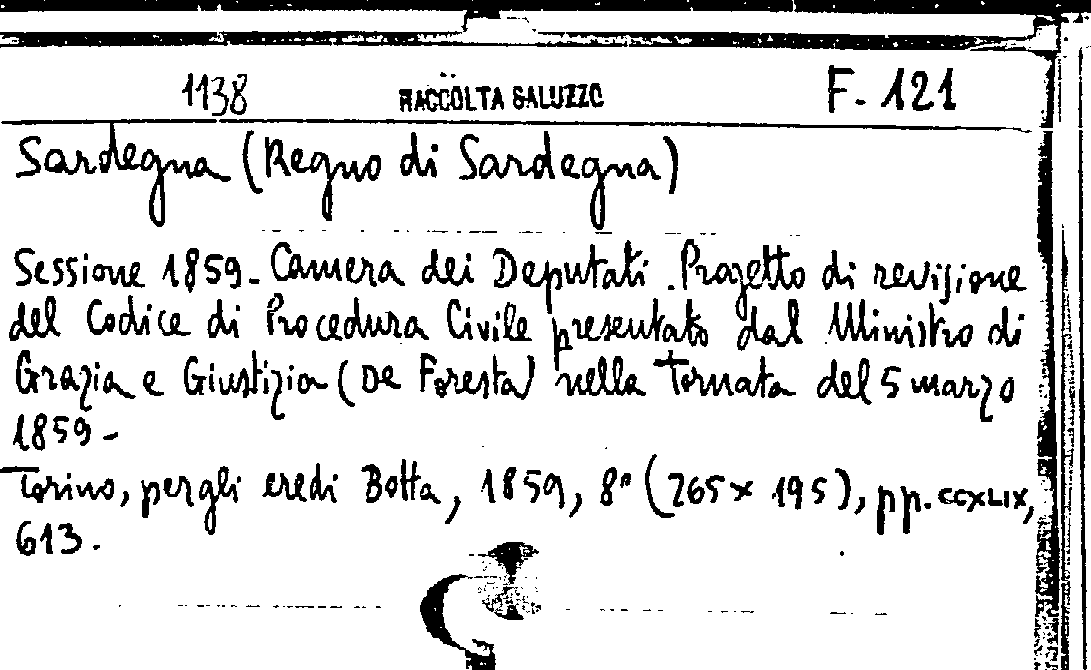 1138 RACCOLTA SALUZZO F. 121
Sardegna (Regno di Sardegna)
Sessione 1859 - Camera dei Deputati. Progetto di revisione
del Codice di Procedura Civile presentato dal Ministro di
Grazia e Giustizia (De Foresta) nella Tornata del 5 marzo
1859 -
Torino, per gli eredi Botta, 1859, 8° (265 x 195), pp. CCXLIX,
613.